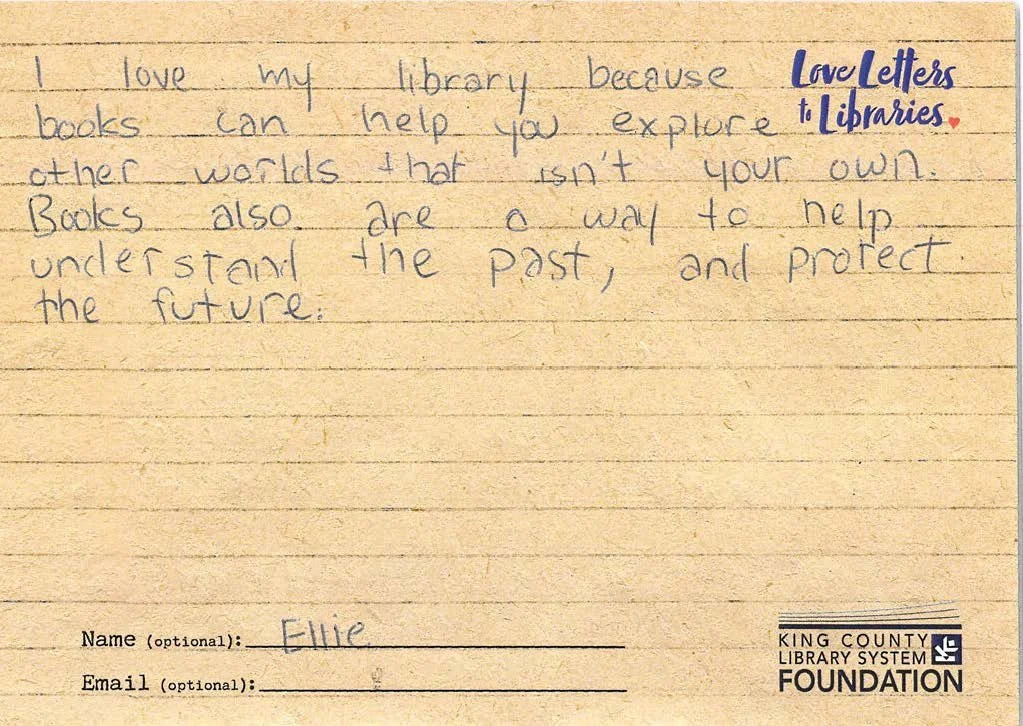 I love my library because
books can help you explore
other worlds that isn't your own.
Books also are a way to help
understand the past, and protect
the future.
Love Letters
to Libraries
Name (optional): Ellie
Email (optional):
KING COUNTY
LIBRARY SYSTEM
FOUNDATION